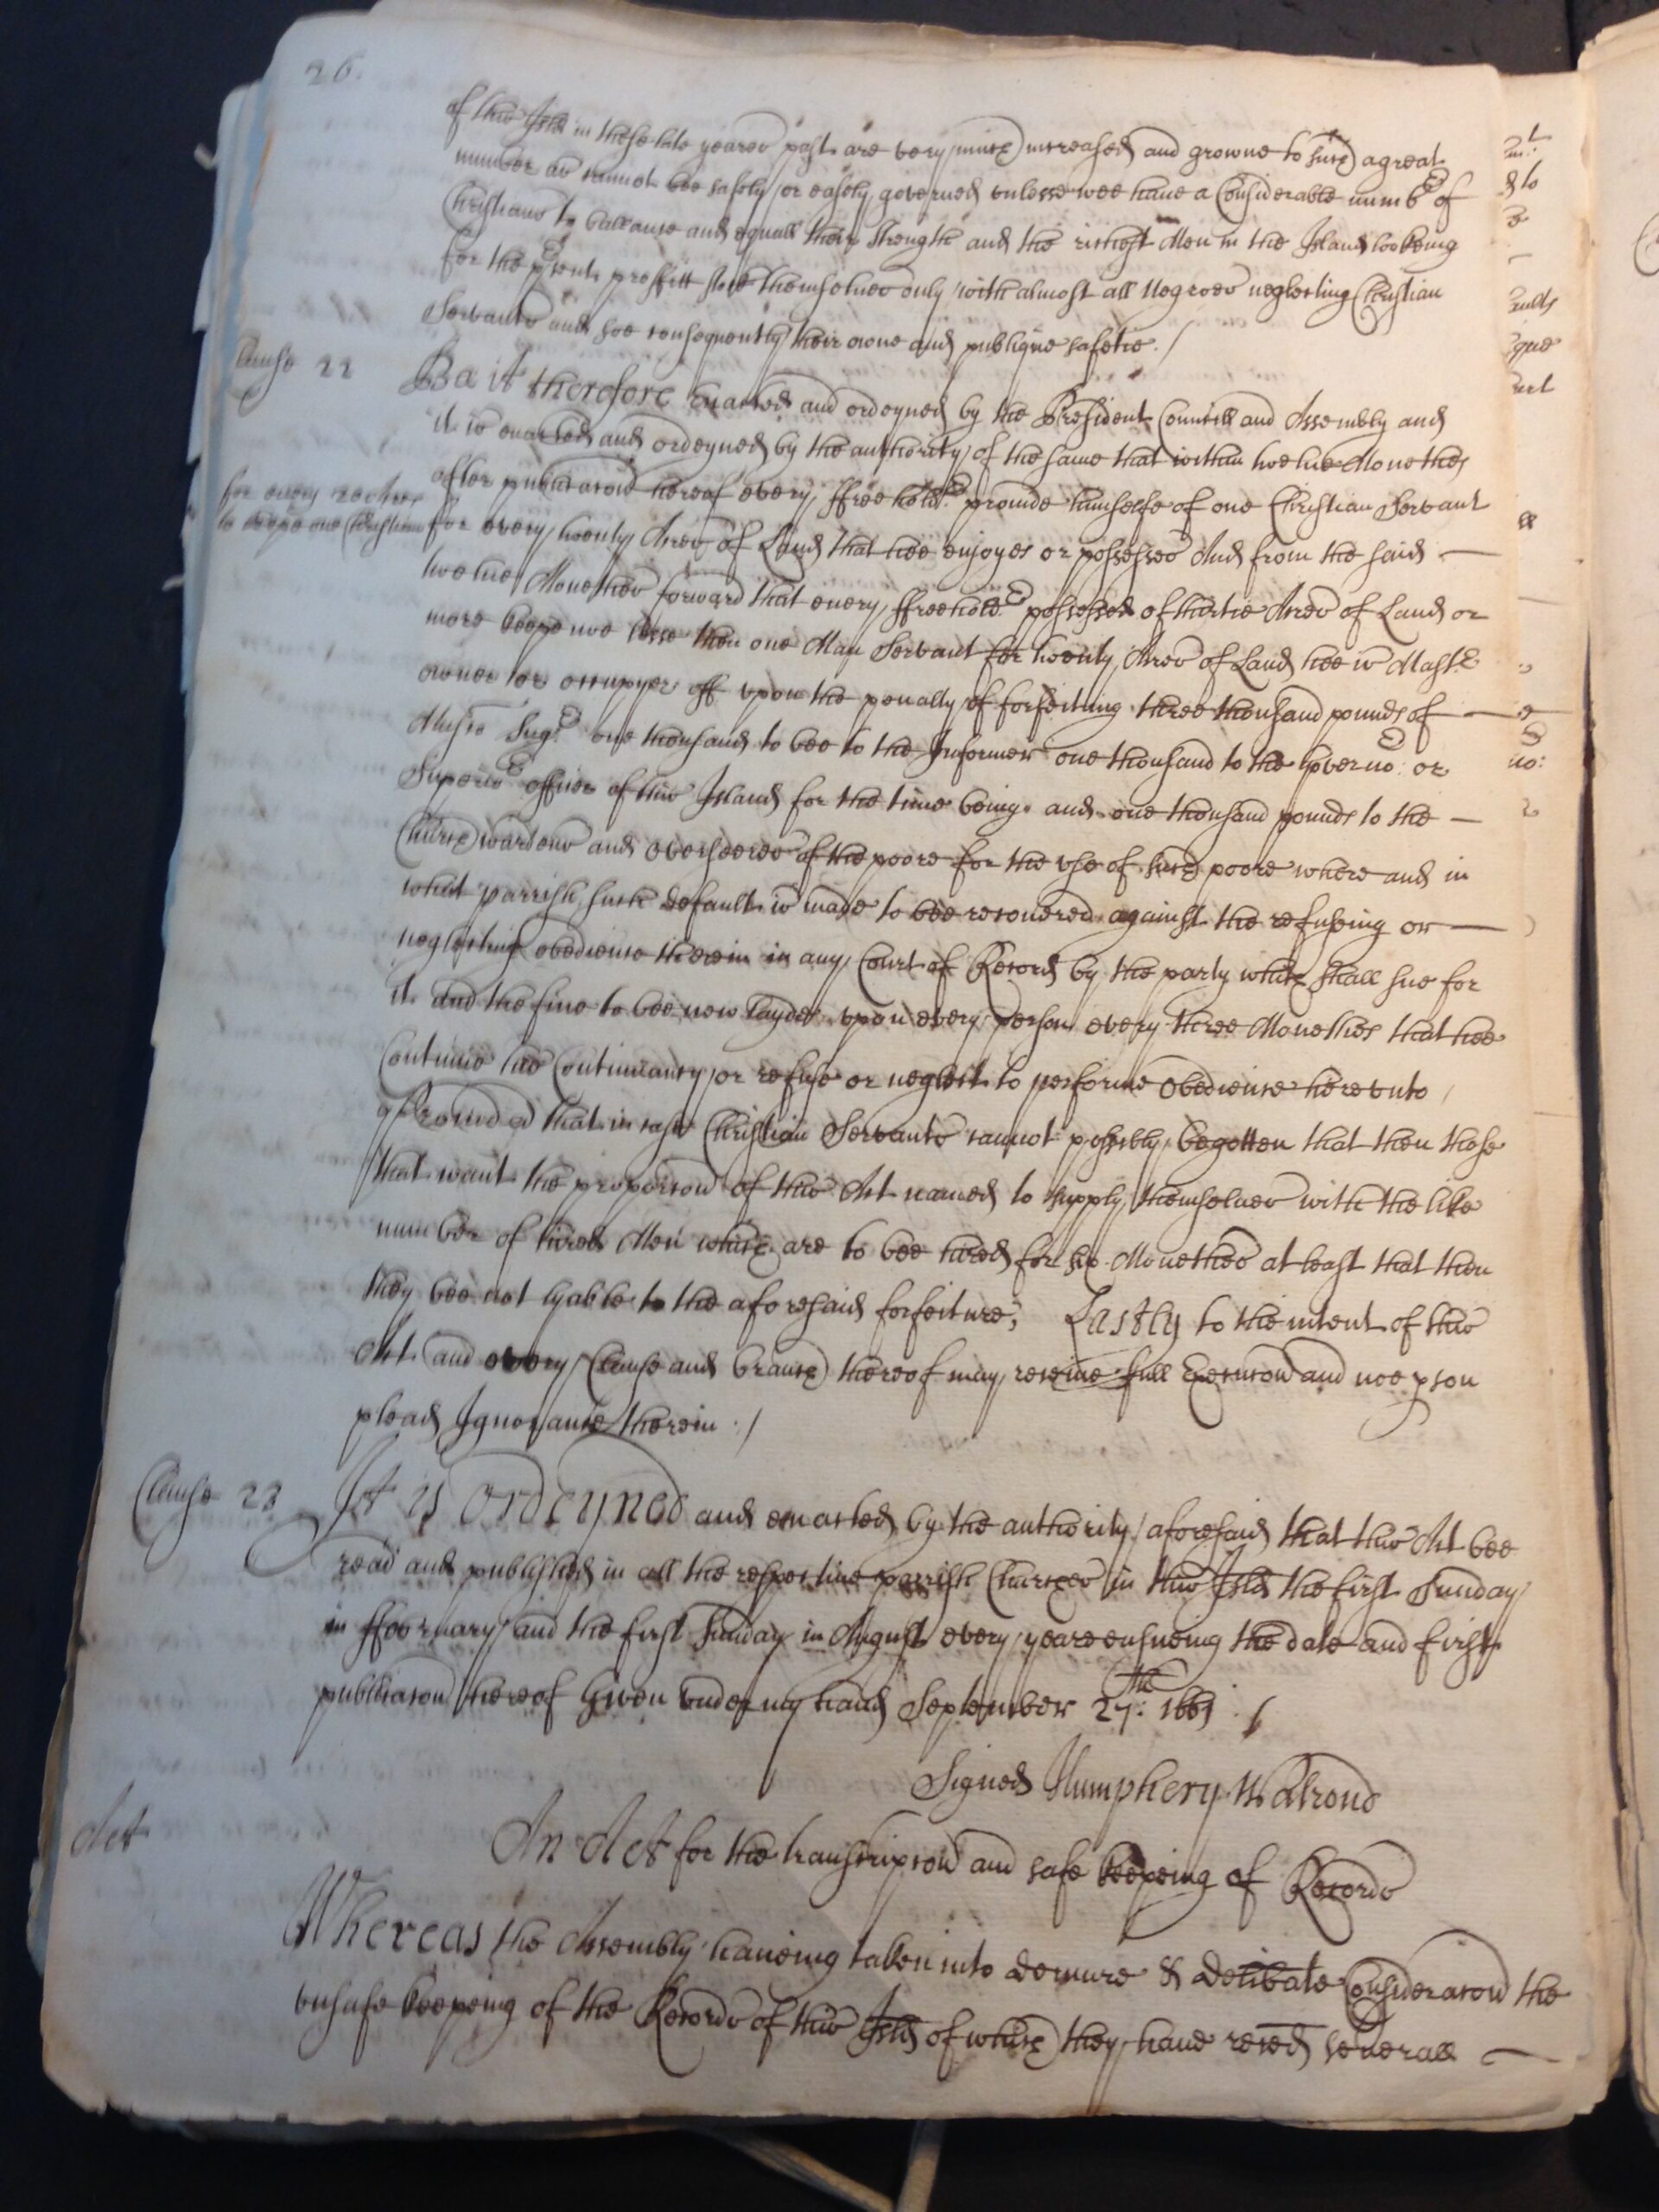 26.
of this Isld in these late yeares past are very much increased and growne to such a great
number as cannot bee safely or easely governed vnlesse wee haue a Considerable numbr of
Christians to ballance and equall their strength and the richest Men in the Island looking
for the psent proffitt store themselues only with almost all Negroes neglecting Christian
Servants and soe consequently their owne and publique safetie./
Clause 22
Be it therefore enacted and ordeyned by the President Councill and Assembly and
it is enacted and ordeyned by the authority of the same that within twelue Monethes
after publicacion hereof every ffreeholdr prouide himselfe of one Christian Servant
for every 20 Acres
to keepe one Christian
for every twenty Acres of Land that hee enjoyes or possesses And from the said
twelue Monethes forward that euery ffreeholdr possessed of thirtie Acres of Land or
more keepe noe lesse then one Man Servant for twenty Acres of Land hee is Mastr
owner or occupyer off vpon the penalty of forfeiting three thousand pounds of
Musco Sugr one thousand to bee to the Informer one thousand to the Governor: or
Superior officer of this Island for the time being and one thousand pounds to the
Churchwardens and overseeres of the poore for the vse of such poore where and in
what parrish such default is made to bee recouered against the refuseing or
neglecting obedience therein in any Court of Record by the party which shall sue for
it And the fine to bee new layde vpon every person every three Monethes that hee
Continue his Continuancy or refuse or neglect to performe obedience herevnto
Prouided that in case Christian Servants cannot possibly begotten that then those
that want the proporcion of this Act named to supply themselues with the like
number of hired Men which are to bee hired for six Monethes at least that then
they bee not lyable to the aforesaid forfeiture; Lastly to the intent of this
Act and every Clause and branch thereof may receiue full Execucion and noe pson
plead Ignorance therein ./
Clause 23
It is Ordeyned and enacted by the authority aforesaid that this Act bee
read and published in all the respectiue parrish Churches in this Isld the first Sunday
in ffebruary and the first Sunday in August every yeare ensueing the date and first
publicacion hereof Given vnder my hand September 27th: 1661 ./
Signed Humphery Walrond
Act
An Act for the transcripcion and safe keepeing of Records
Whereas the Assembly haueing taken into demure & delibate Consideracion the
vnsafe keepeing of the Records of this Isld of which they haue reced severall